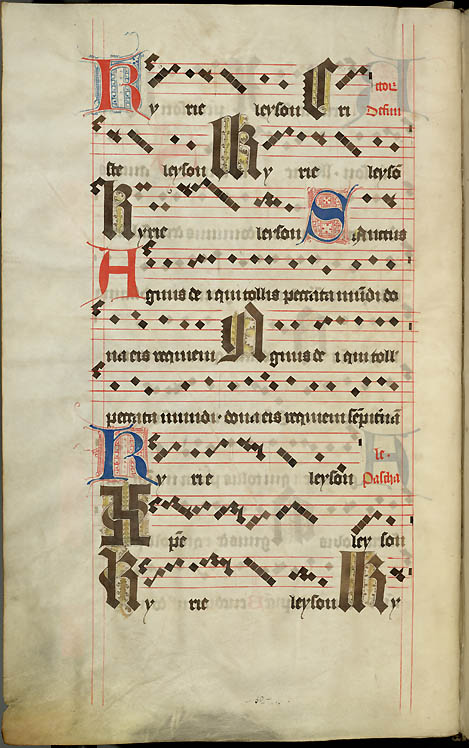 Ky rie leyson Cri
ste leyson Ky rie leysō
Kyrie leyson Sanctus
Agnus de i qui tollis peccata mūdi do
na eis requiem Agnus de i qui toll
peccata mundi · dona eis requiem sēpit̄nā
Ky rie leyson le
Pascha
Xpē ley son
Ky rie leyson Ky